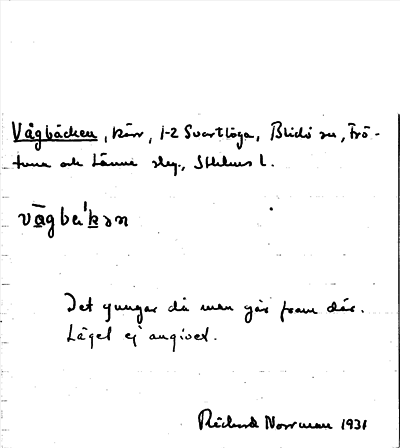 Vågbäcken, kärr, 1-2 Svartlöga, Blidö sn, Frö-
tuna och Länna skg., Sthlms l.
vāgbäˈkən
Det gungar då man går fram där.
Läget ej angivet.
Rickard Norrman 1931